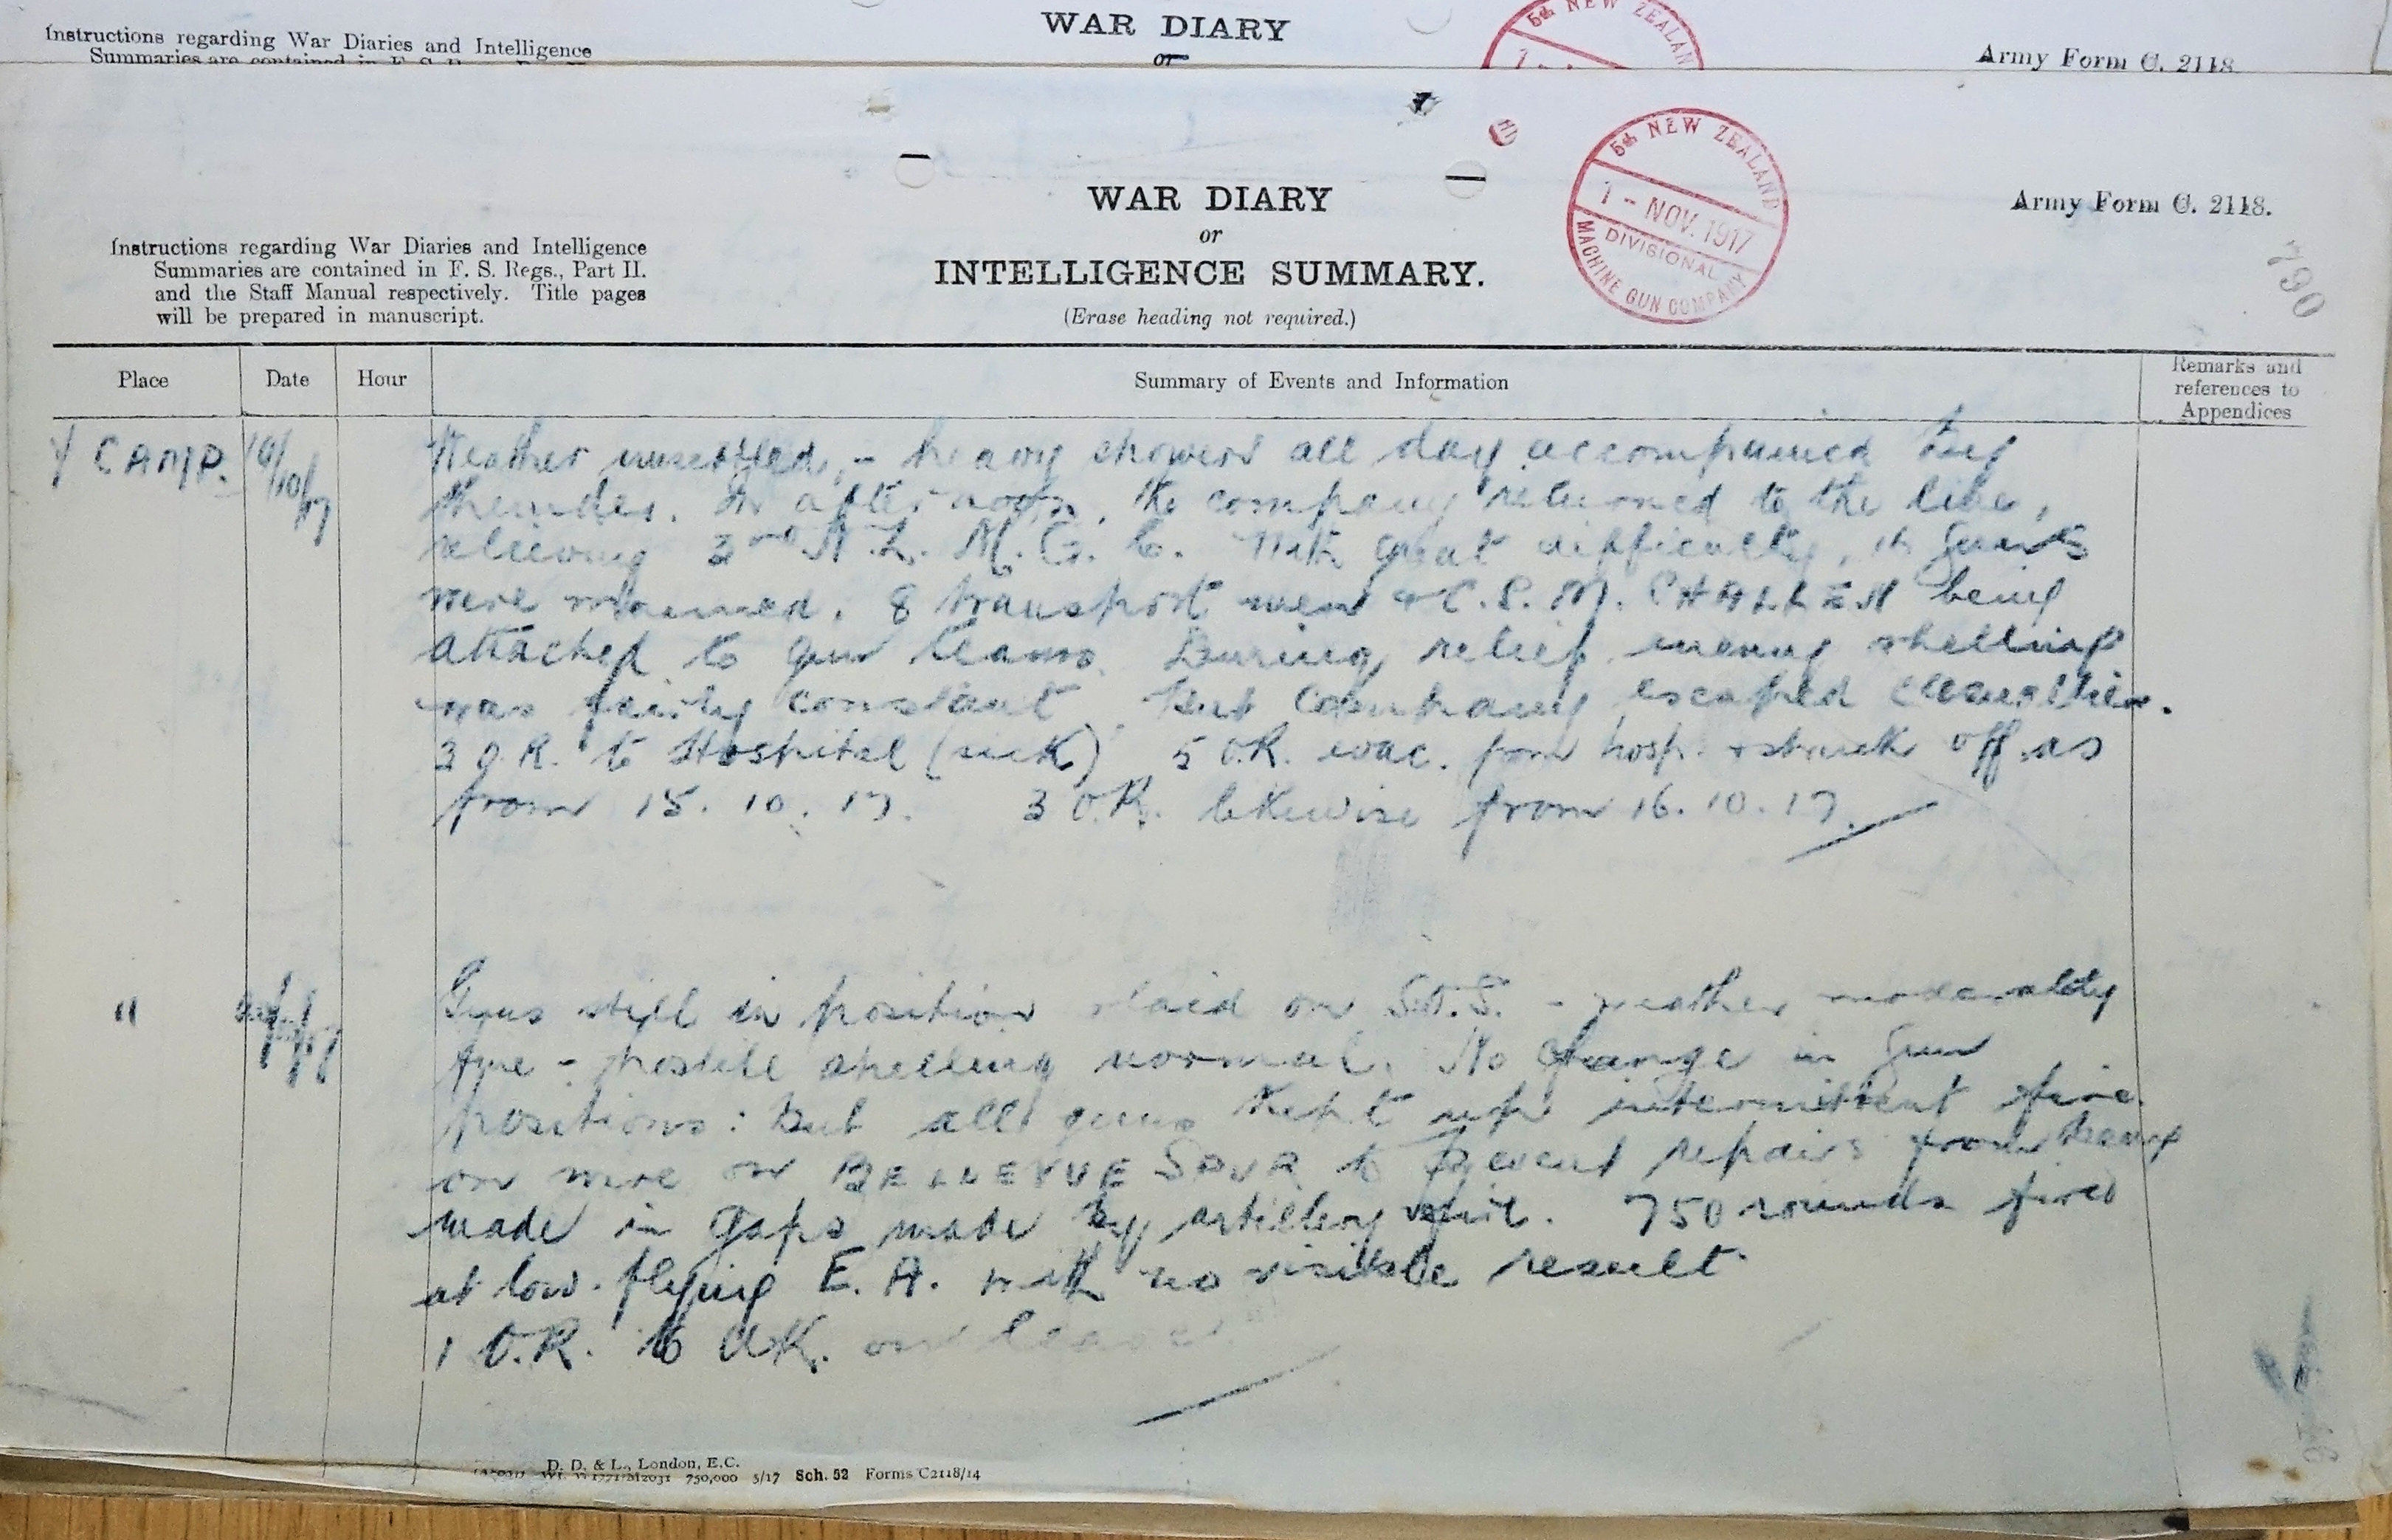 WAR DIARY
or
Instructions regarding War Diaries and Intelligence
Summaries are contained in F. S.
Army Form C. 2118
5th NEW ZEALAN
WAR DIARY
or
INTELLIGENCE SUMMARY.
(Erase heading not required.)
Instructions regarding War Diaries and Intelligence
Summaries are contained in F. S. Regs., Part II.
and the Staff Manual respectively. Title pages
will be prepared in manuscript.
5th NEW ZEALAND
1 - NOV. 1917
DIVISIONAL
MACHINE GUN COMPANY
Army Form C. 2118.
790
Place Date Hour Summary of Events and Information Remarks and
references to
Appendices
Y CAMP. /10/17 Weather unsettled, - heavy showers all day accompanied by
thunder. In afternoon, the company returned to the line,
relieving 3rd N.Z. M.G.C. With great difficulty, guns
were manned, 8 transport men & C.S.M. CHALLEN being
attached to gun teams. During relief enemy shelling
was fairly constant but Company escaped casualties.
3 O.R. to Hospital (sick) 5 O.R. evac. from hosp. & struck off as
from 15.10.17. 3 O.R. likewise from 16.10.17.
" Guns still in position laid on S.O.S. - weather moderately
fine - hostile shelling normal. No change in gun
positions: but all guns kept up intermittent fire
on wire on BELLEVUE SPUR to prevent repairs from being
made in gaps made by artillery fire. 750 rounds fired
at low-flying E.A. with no visible result
1 O.R. to U.K. on leave
D. D. & L., London, E.C.
750,000 5/17 Sch. 52 Forms C2118/14